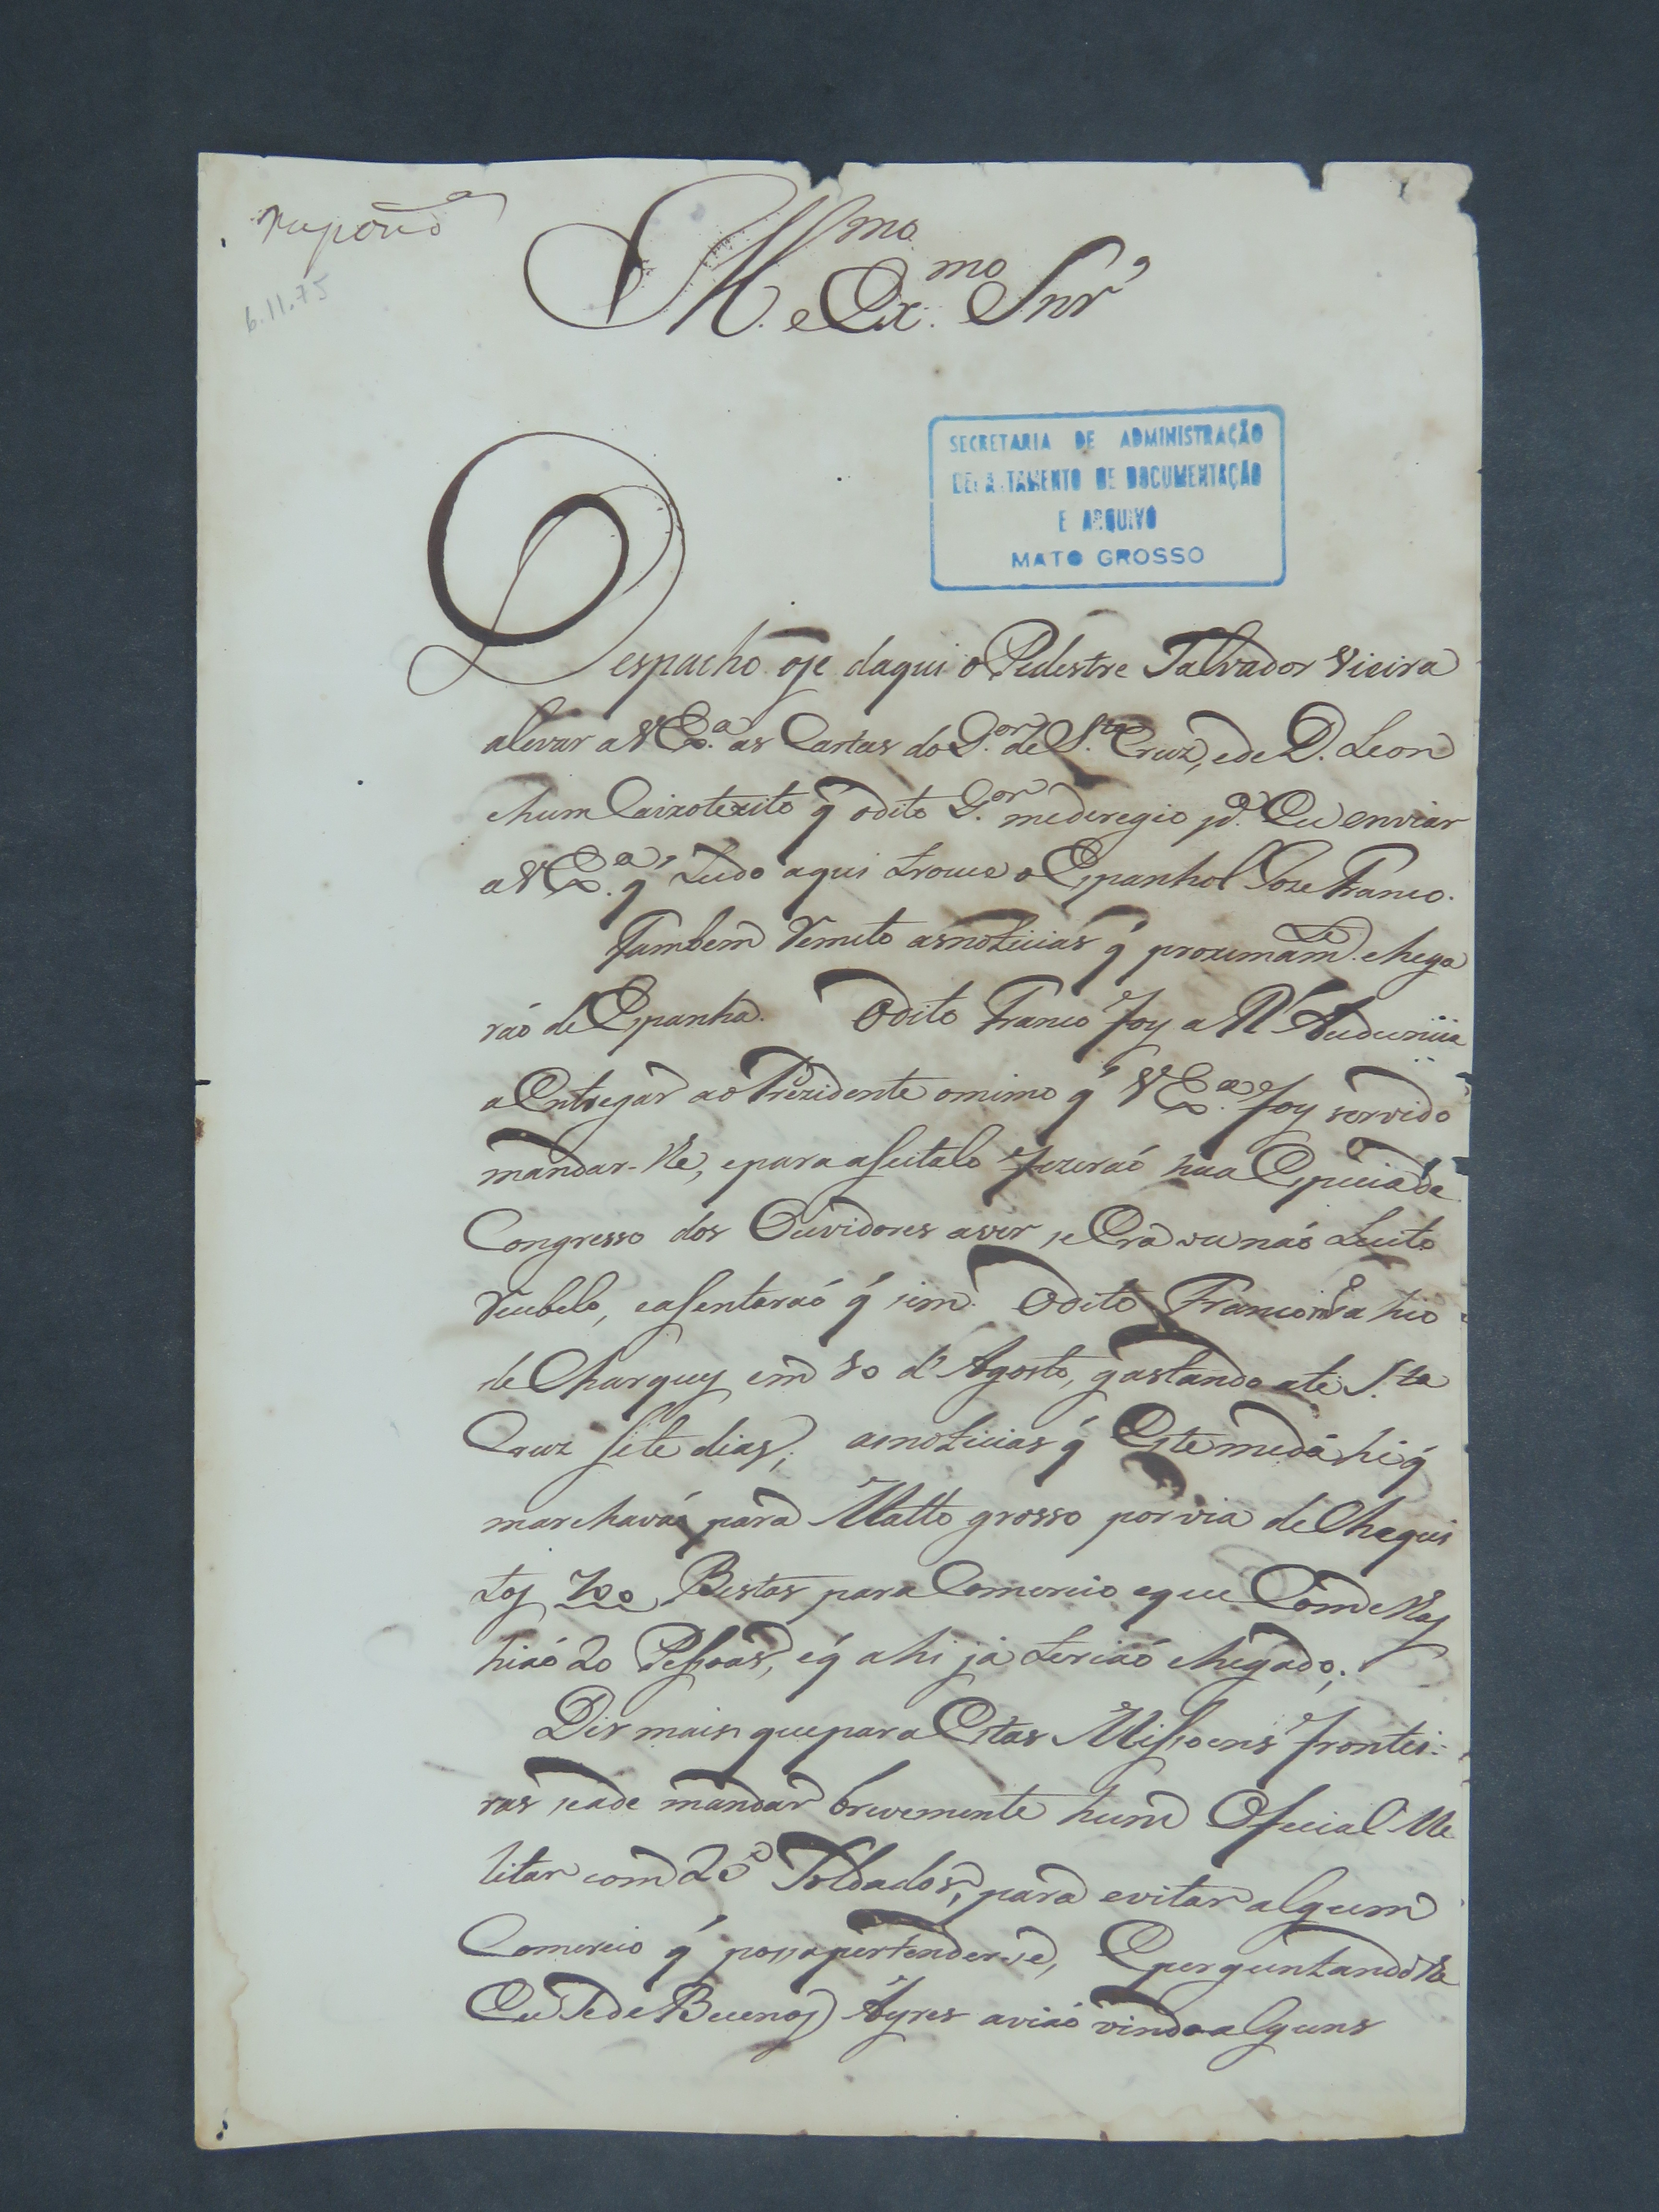 6.11.75
Ill.mo e Ex.mo Snr'
SECRETARIA DE ADMINISTRAÇÃO
DEPARTAMENTO DE DOCUMENTAÇÃO
E ARQUIVO
MATO GROSSO
Despacho oje daqui o Pedestre Salvador Vieira
a levar a V Ex.a as Cartas do G.or de S.ta Cruz, e de D. Leon
e hum Caixotexito q' o dito G.or me deregio p.a Eu enviar
a V Ex.a q' tudo aqui trouce o Espanhol Joze Franco.
Tambem remeto as noticias q' proximam.te chega
ráo de Espanha. O dito Franco foy a R' Audiencia
a Entregar ao Prezidente o mimo q' V Ex.a foy servido
mandar-lhe, e para aseitalo fizeraó hua Especia de
Congresso dos Ouvidores a ver se Era ou naó Licito
recebelo, e asentaraó q' sim. O dito Franco sahio
de Charquy em 30 d' Agosto, gastando ate S.ta
Cruz sete dias; as noticias q' Este me dá hé q'
marchaváo para Matto grosso por via de Chiqui
tos 700 Bestas para Comercio e que Com Ellas
hiaó 20 Pessoas, e q' ahi já teriaó chegado;
Dis mais que para Estas Missoens frontei:
ras se ade mandar brevemente hum Oficial Me
litar com 20 Soldados, para evitar algum
Comercio q' possa pertender-se, E perguntando lhe
Eu Se de Buenos Ayres aviaó vindo alguns